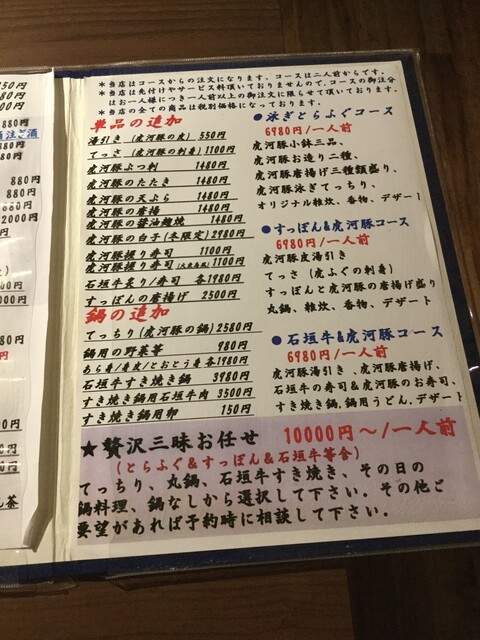 *当店はコースからの注文になります。コースは二人前からです。
*当店は先付けやサービス料頂いておりませんので、コースの御注分
はお一人様につき一人前以上の御注文に限らせて頂いております。
*当店の全ての商品は税別価格になっております。
単品の追加
湯引き(虎河豚の皮) 550円
てっさ(虎河豚の刺身)1100円
虎河豚ぶつ刺 1480円
虎河豚のたたき 1480円
虎河豚の天ぷら 1480円
虎河豚の唐揚 1480円
虎河豚の醤油麹焼 1480円
虎河豚の白子(冬限定)2980円
虎河豚握り寿司 1100円
虎河豚握り寿司 1100円
石垣牛炙り/寿司 各1980円
すっぽんの唐揚げ 2500円
鍋の追加
てっちり(虎河豚の鍋)2580円
鍋用の野菜等 980円
あら身/身皮/とおとう身 各1980円
石垣牛すき焼き鍋 3980円
すき焼き鍋用石垣牛肉 3500円
すき焼き鍋用卵 150円
●泳ぎとらふぐコース
6980円/一人前
虎河豚小鉢三品、
虎河豚お造り二種、
虎河豚唐揚げ三種類盛り、
虎河豚泳ぎてっちり、
オリジナル雑炊、香物、デザート
●すっぽん&虎河豚コース
6980円/一人前
虎河豚皮湯引き
てっさ(虎ふぐの刺身)
すっぽんと虎河豚の唐揚げ盛り
丸鍋、雑炊、香物、デザート
●石垣牛&虎河豚コース
6980円/一人前
虎河豚湯引き、虎河豚唐揚げ、
石垣牛の寿司&虎河豚のお寿司、
すき焼き鍋,鍋用うどん,デザート
★贅沢三昧お任せ 10000円~/一人前
(とらふぐ&すっぽん&石垣牛等含)
てっちり、丸鍋、石垣牛すき焼き、その日の
鍋料理、鍋なしから選択して下さい。その他ご
要望があれば予約時に相談して下さい.